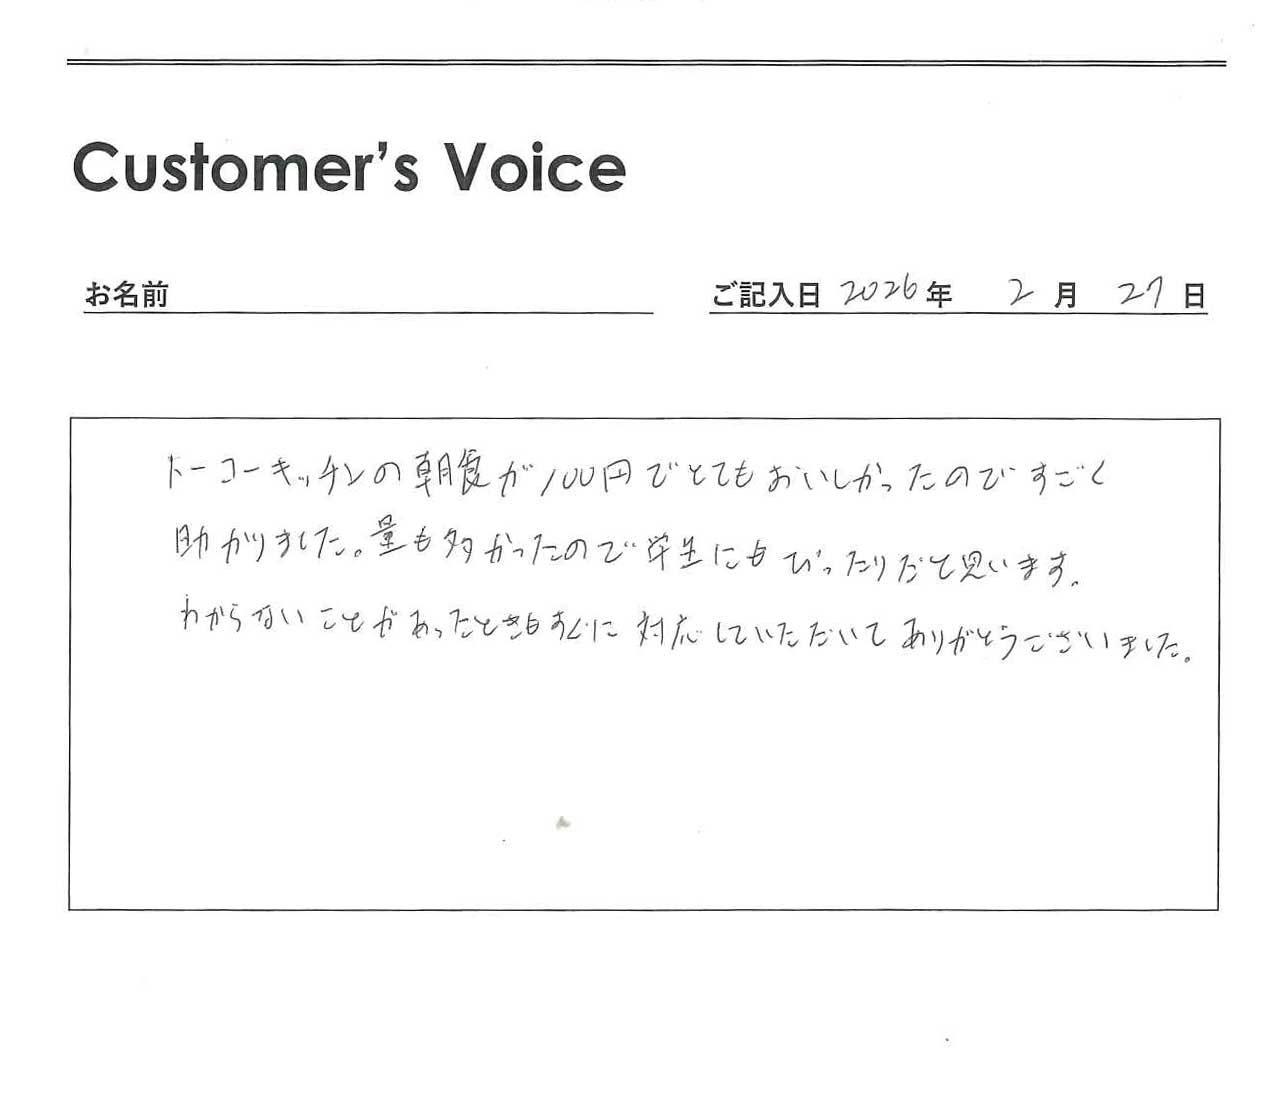 Customer's Voice
お名前
ご記入日 2026年 2月 27日
トーコーキッチンの朝食が100円でとてもおいしかったのですごく
助かりました。量も多かったので学生にもぴったりだと思います。
わからないことがあったときもすぐに対応していただいてありがとうございました。